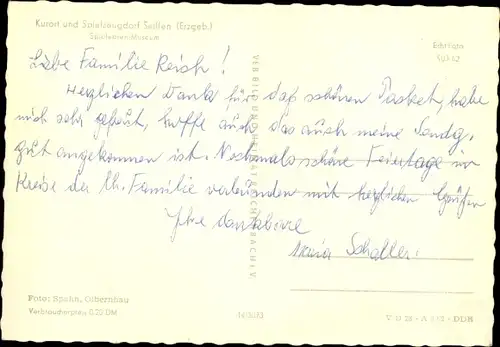 Kurort und Spielzeugdorf Seiffen (Erzgeb.)
Spielzeugmuseum
Echt Foto
Liebe Familie Reich!
Herzlichen Dank für daß schönen Packet, habe
mich sehr gefreut, hoffe auch das auch meine Sendg.
gut angekommen ist. Nochmals schöne Feiertage im
Kreise der lb. Familie verbunden mit herzlichen Grüßen
Ihre dankbare
Maria Schaller.
Foto: Spahn, Olbernhau
Verbraucherpreis 0,22 DM
DDR